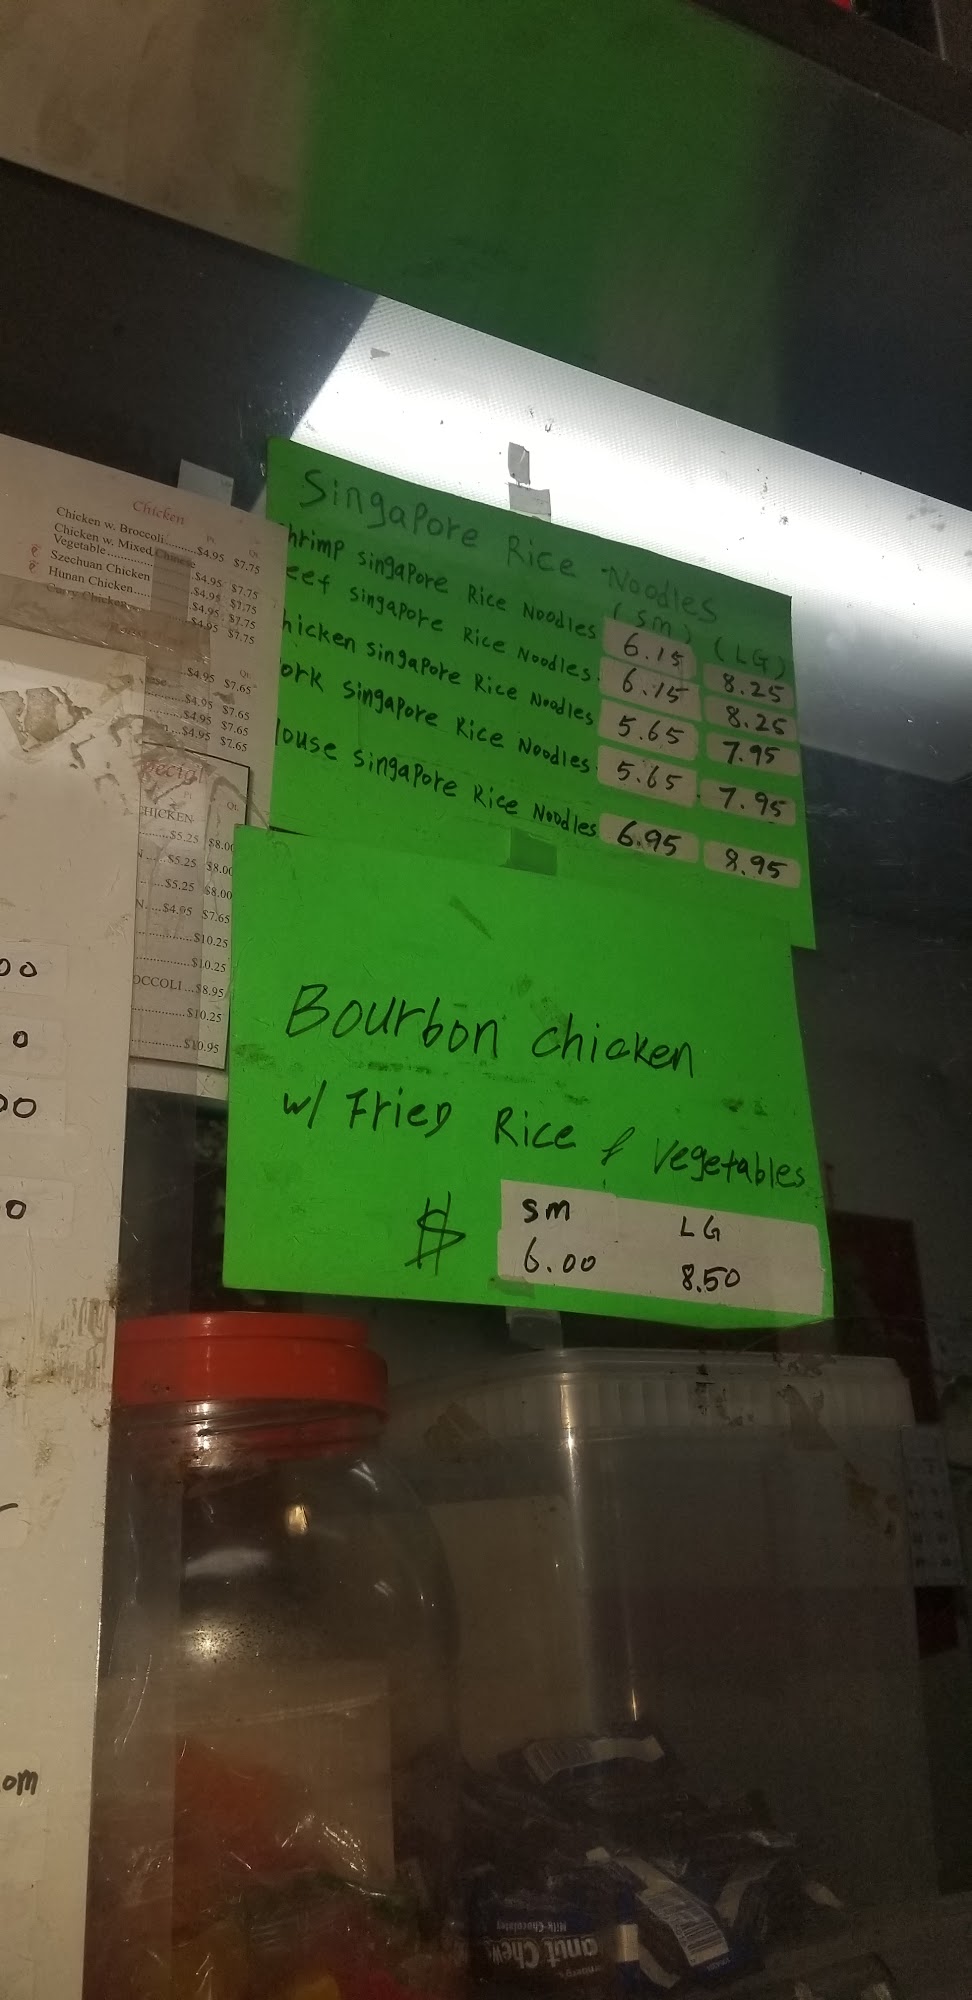 Singapore Rice Noodles
(sm) (LG)
hrimp singapore Rice Noodles 6.15 8.25
eef singapore Rice Noodles. 6.15 8.25
hicken singapore Rice Noodles 5.65 7.95
ork singapore Rice Noodles. 5.65 7.95
louse singapore Rice Noodles 6.95 8.95
Bourbon chicken
w/ Fried Rice & vegetables
sm LG
$ 6.00 8.50
Chicken
Pt. Qt.
Chicken w. Broccoli........$4.95 $7.75
Chicken w. Mixed Chinese
Vegetable............$4.95 $7.75
Szechuan Chicken $4.95 $7.75
Hunan Chicken.... $4.95 $7.75
Curry Chicken
Qt.
$4.95 $7.65
$4.95 $7.65
$4.95 $7.65
$4.95 $7.65
pecial
Pt. Qt.
HICKEN
........$5.25 $8.00
N.....$5.25 $8.00
......$5.25 $8.00
N....$4.95 $7.65
..............$10.25
..............$10.25
OCCOLI...$8.95
..............$10.25
..............$10.95
00
0
00
0
om
anut Chew
Milk Chocolatey